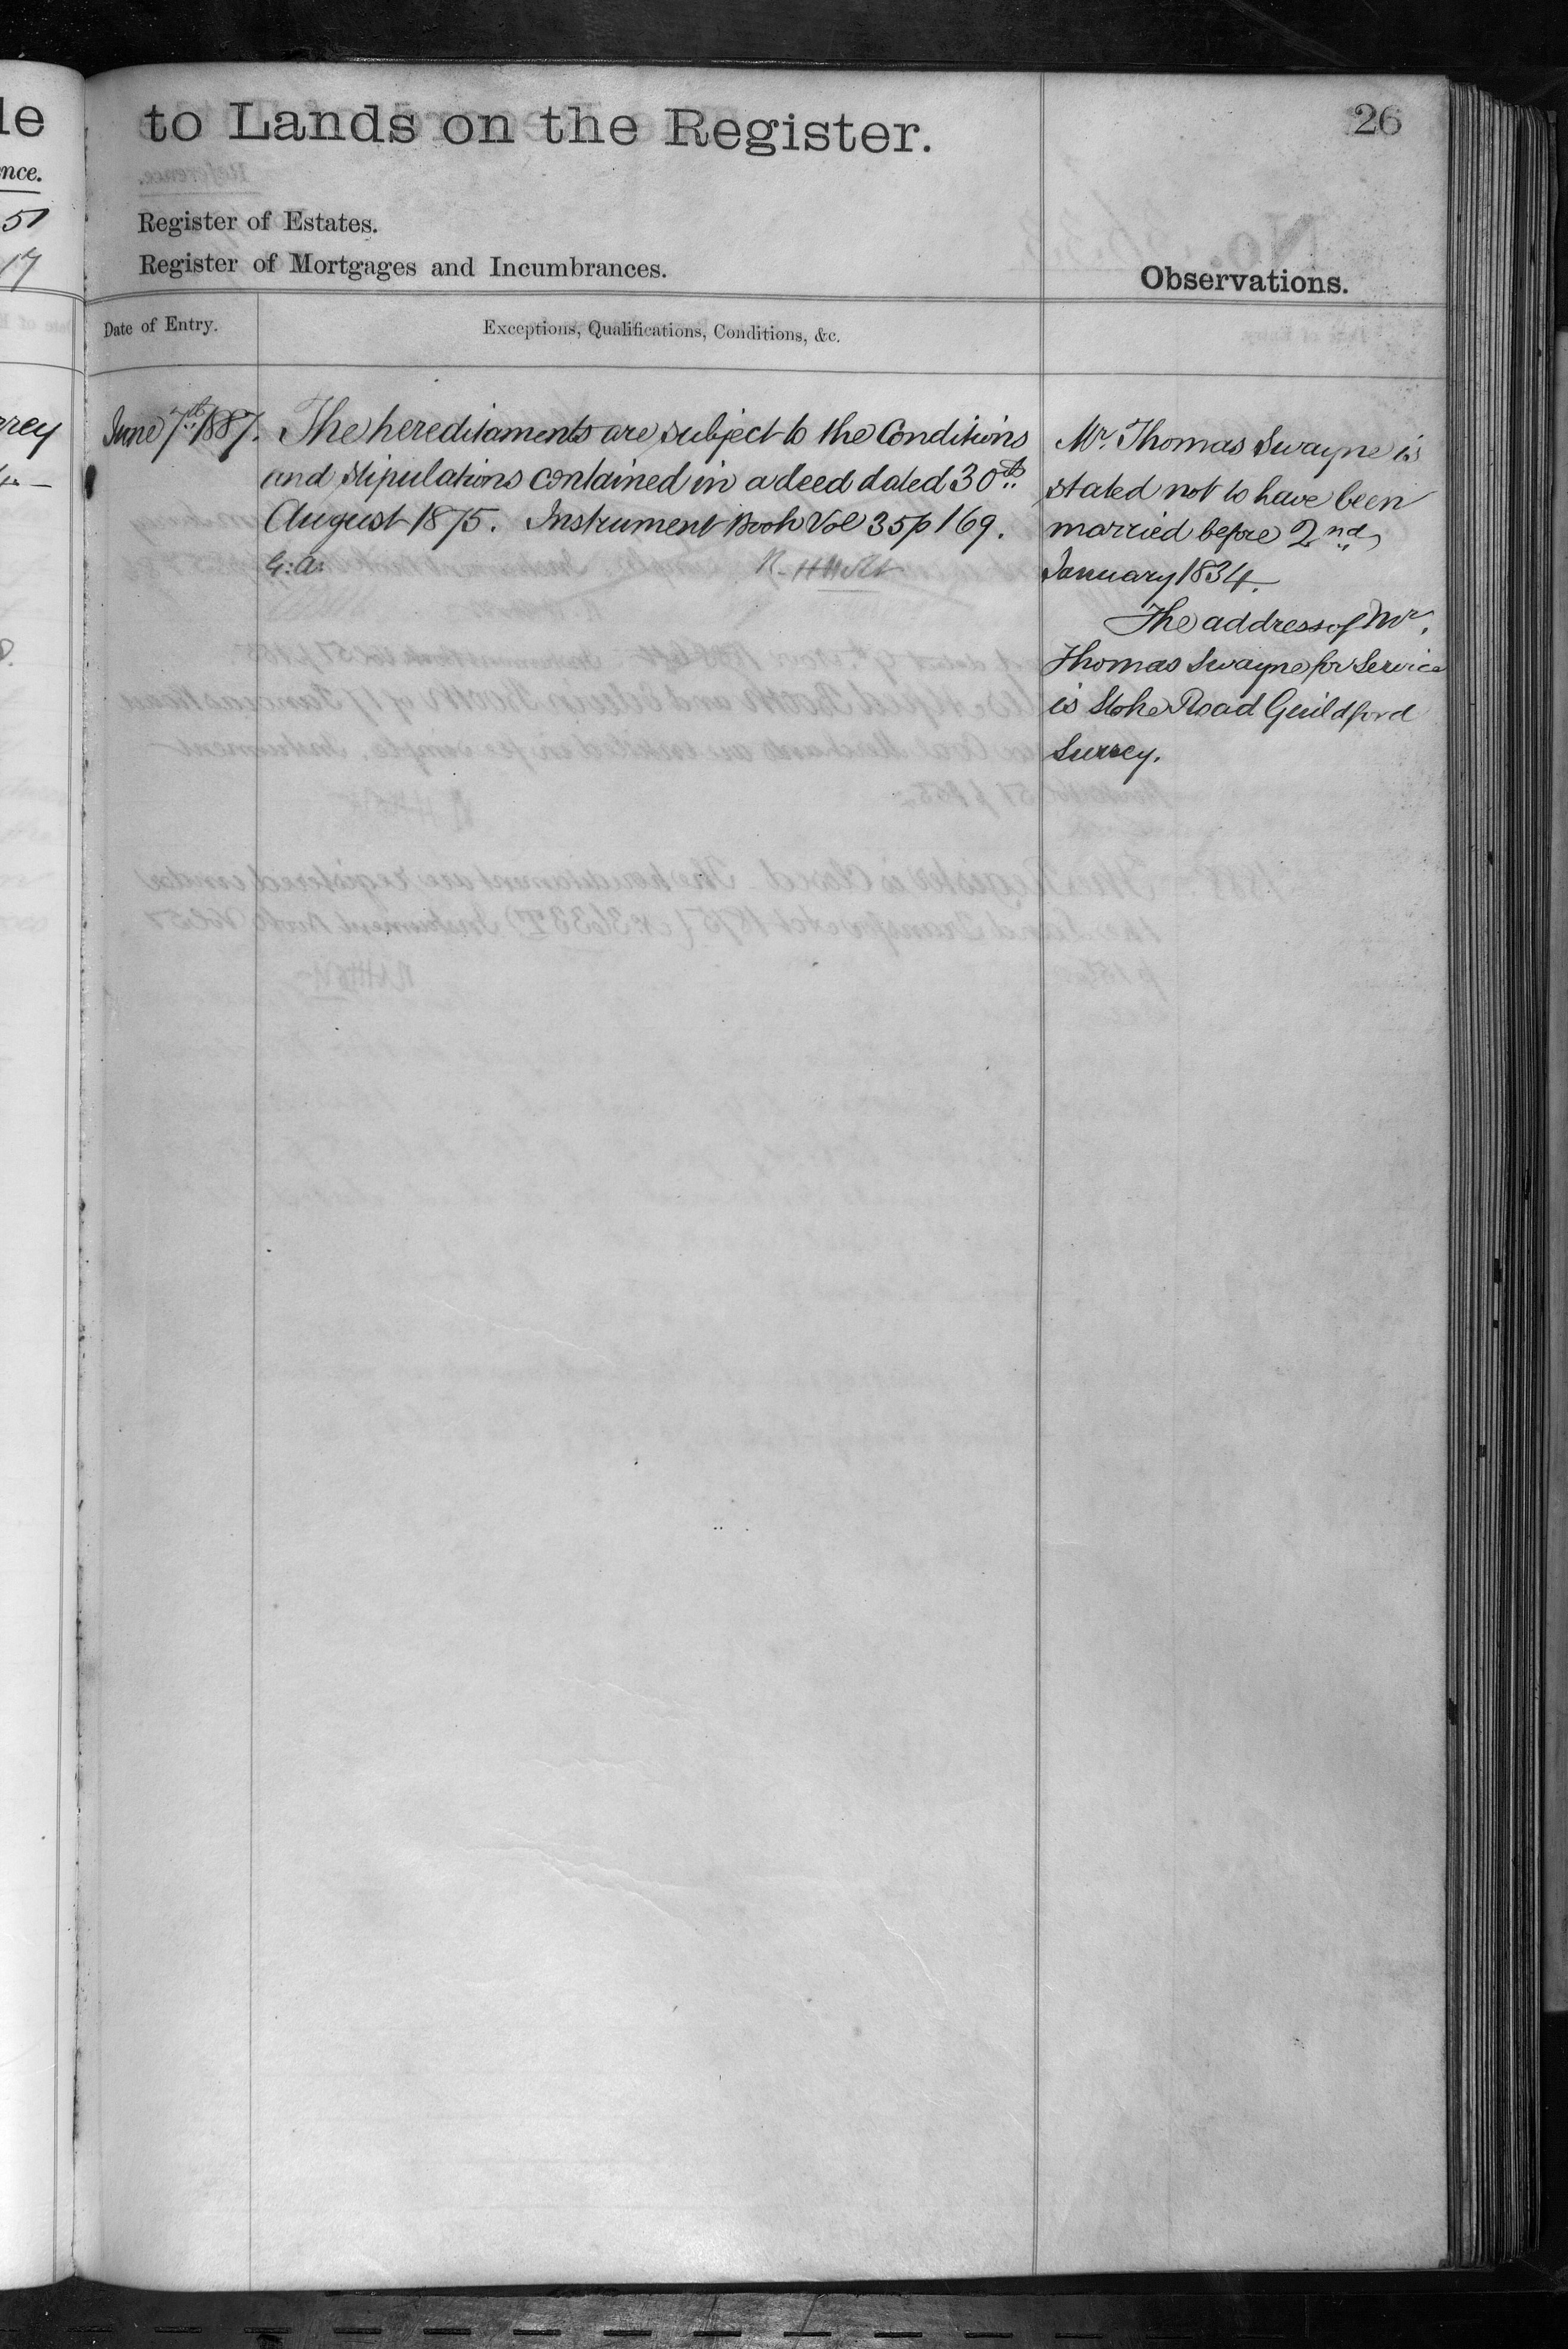 le
nce.
51
17
rrey
to Lands on the Register.
26
Register of Estates.
Register of Mortgages and Incumbrances.
Observations.
Date of Entry.
Exceptions, Qualifications, Conditions, &c.
June 7th 1887. The hereditaments are subject to the Conditions
and stipulations contained in a deed dated 30th
August 1875. Instrument Book Vol 35 p 169.
G: A:
Mr. Thomas Swayne is
stated not to have been
married before 2nd
January 1834.
The address of Mr.
Thomas Swayne for Service
is Stoke Road Guildford
Surrey.